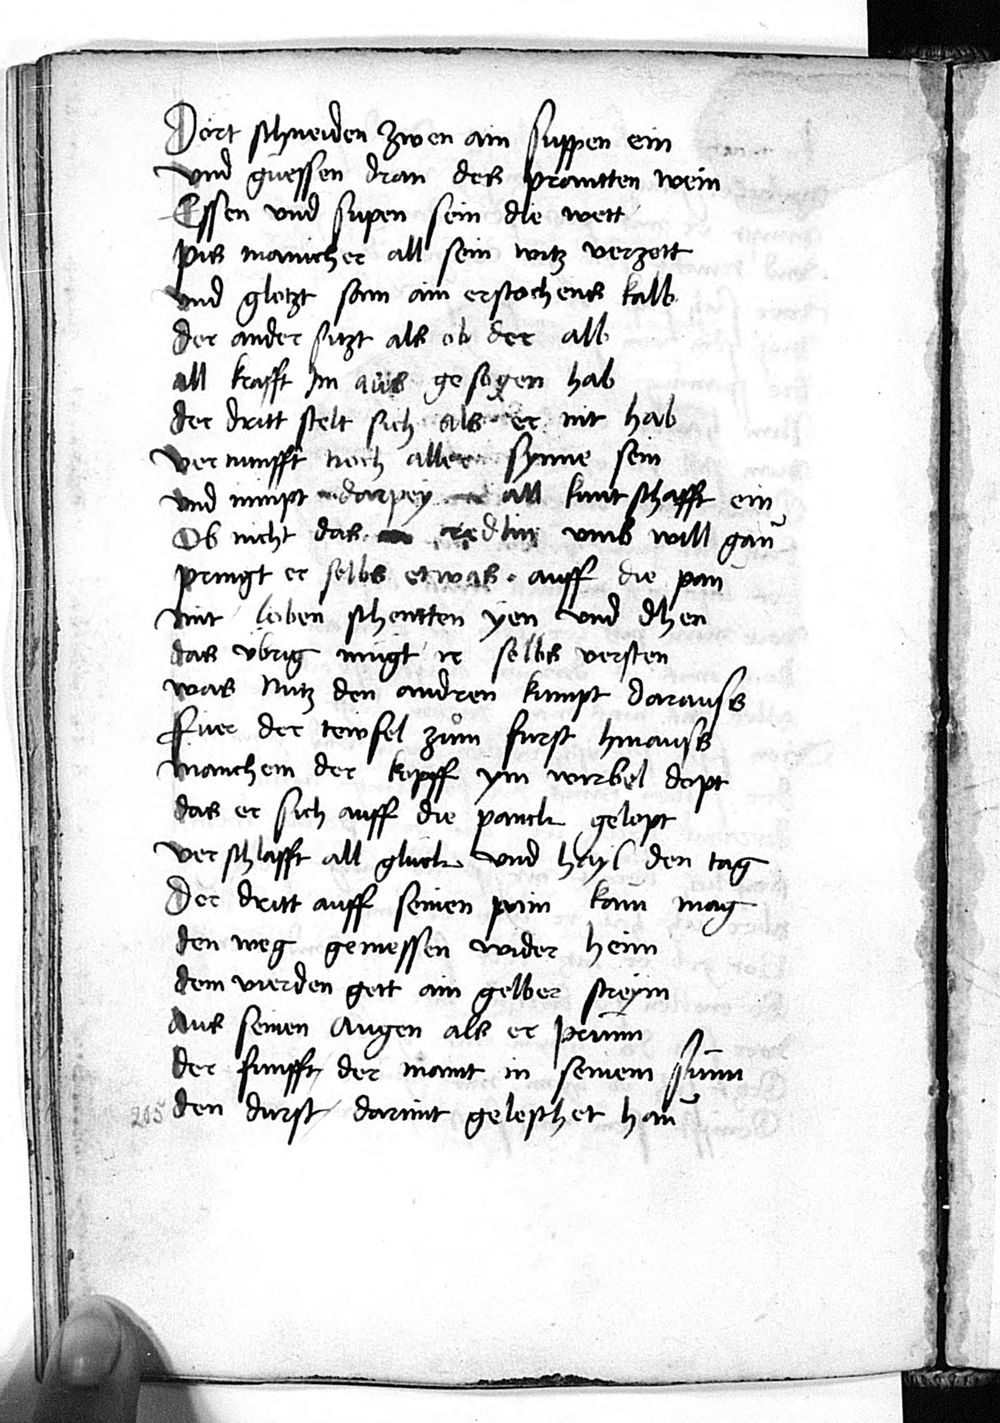 Dort schneiden zwen ain suppen ein
vnd guessen dran des prantten wein
Essen vnd supen sein die wett
pis manicher all sein witz verzett
vnd glotzt sam ain erstochens kalb
der ander sitzt als ob der alb
all krafft Im aus gesogen hab
der dritt stelt sich als er nit hab
vernunfft noch aller synne sein
vnd nimpt darpey all kuntschafft ein
Ob nicht das redlin vmb will gan
pringt er selbs etwas auff die pan
mit loben schentten yen vnd dhen
das vbrig mugt ir selbs versten
was Nutz den andren kumpt darauss
Fuer der teiwfel zům furst hinauss
manchem der kopff ym wirbel dopt
das er sich auff die panck gelopt
verschlafft all gluck vnd hayl den tag
Der dritt auff seinen pain kaum mag
den weg gemessen wider heim
dem vierden gett ain gelber streym
Aus seinen Augen als er prunn
der funfft der maint in seinem sunn
205 den durst darmit geleschet han